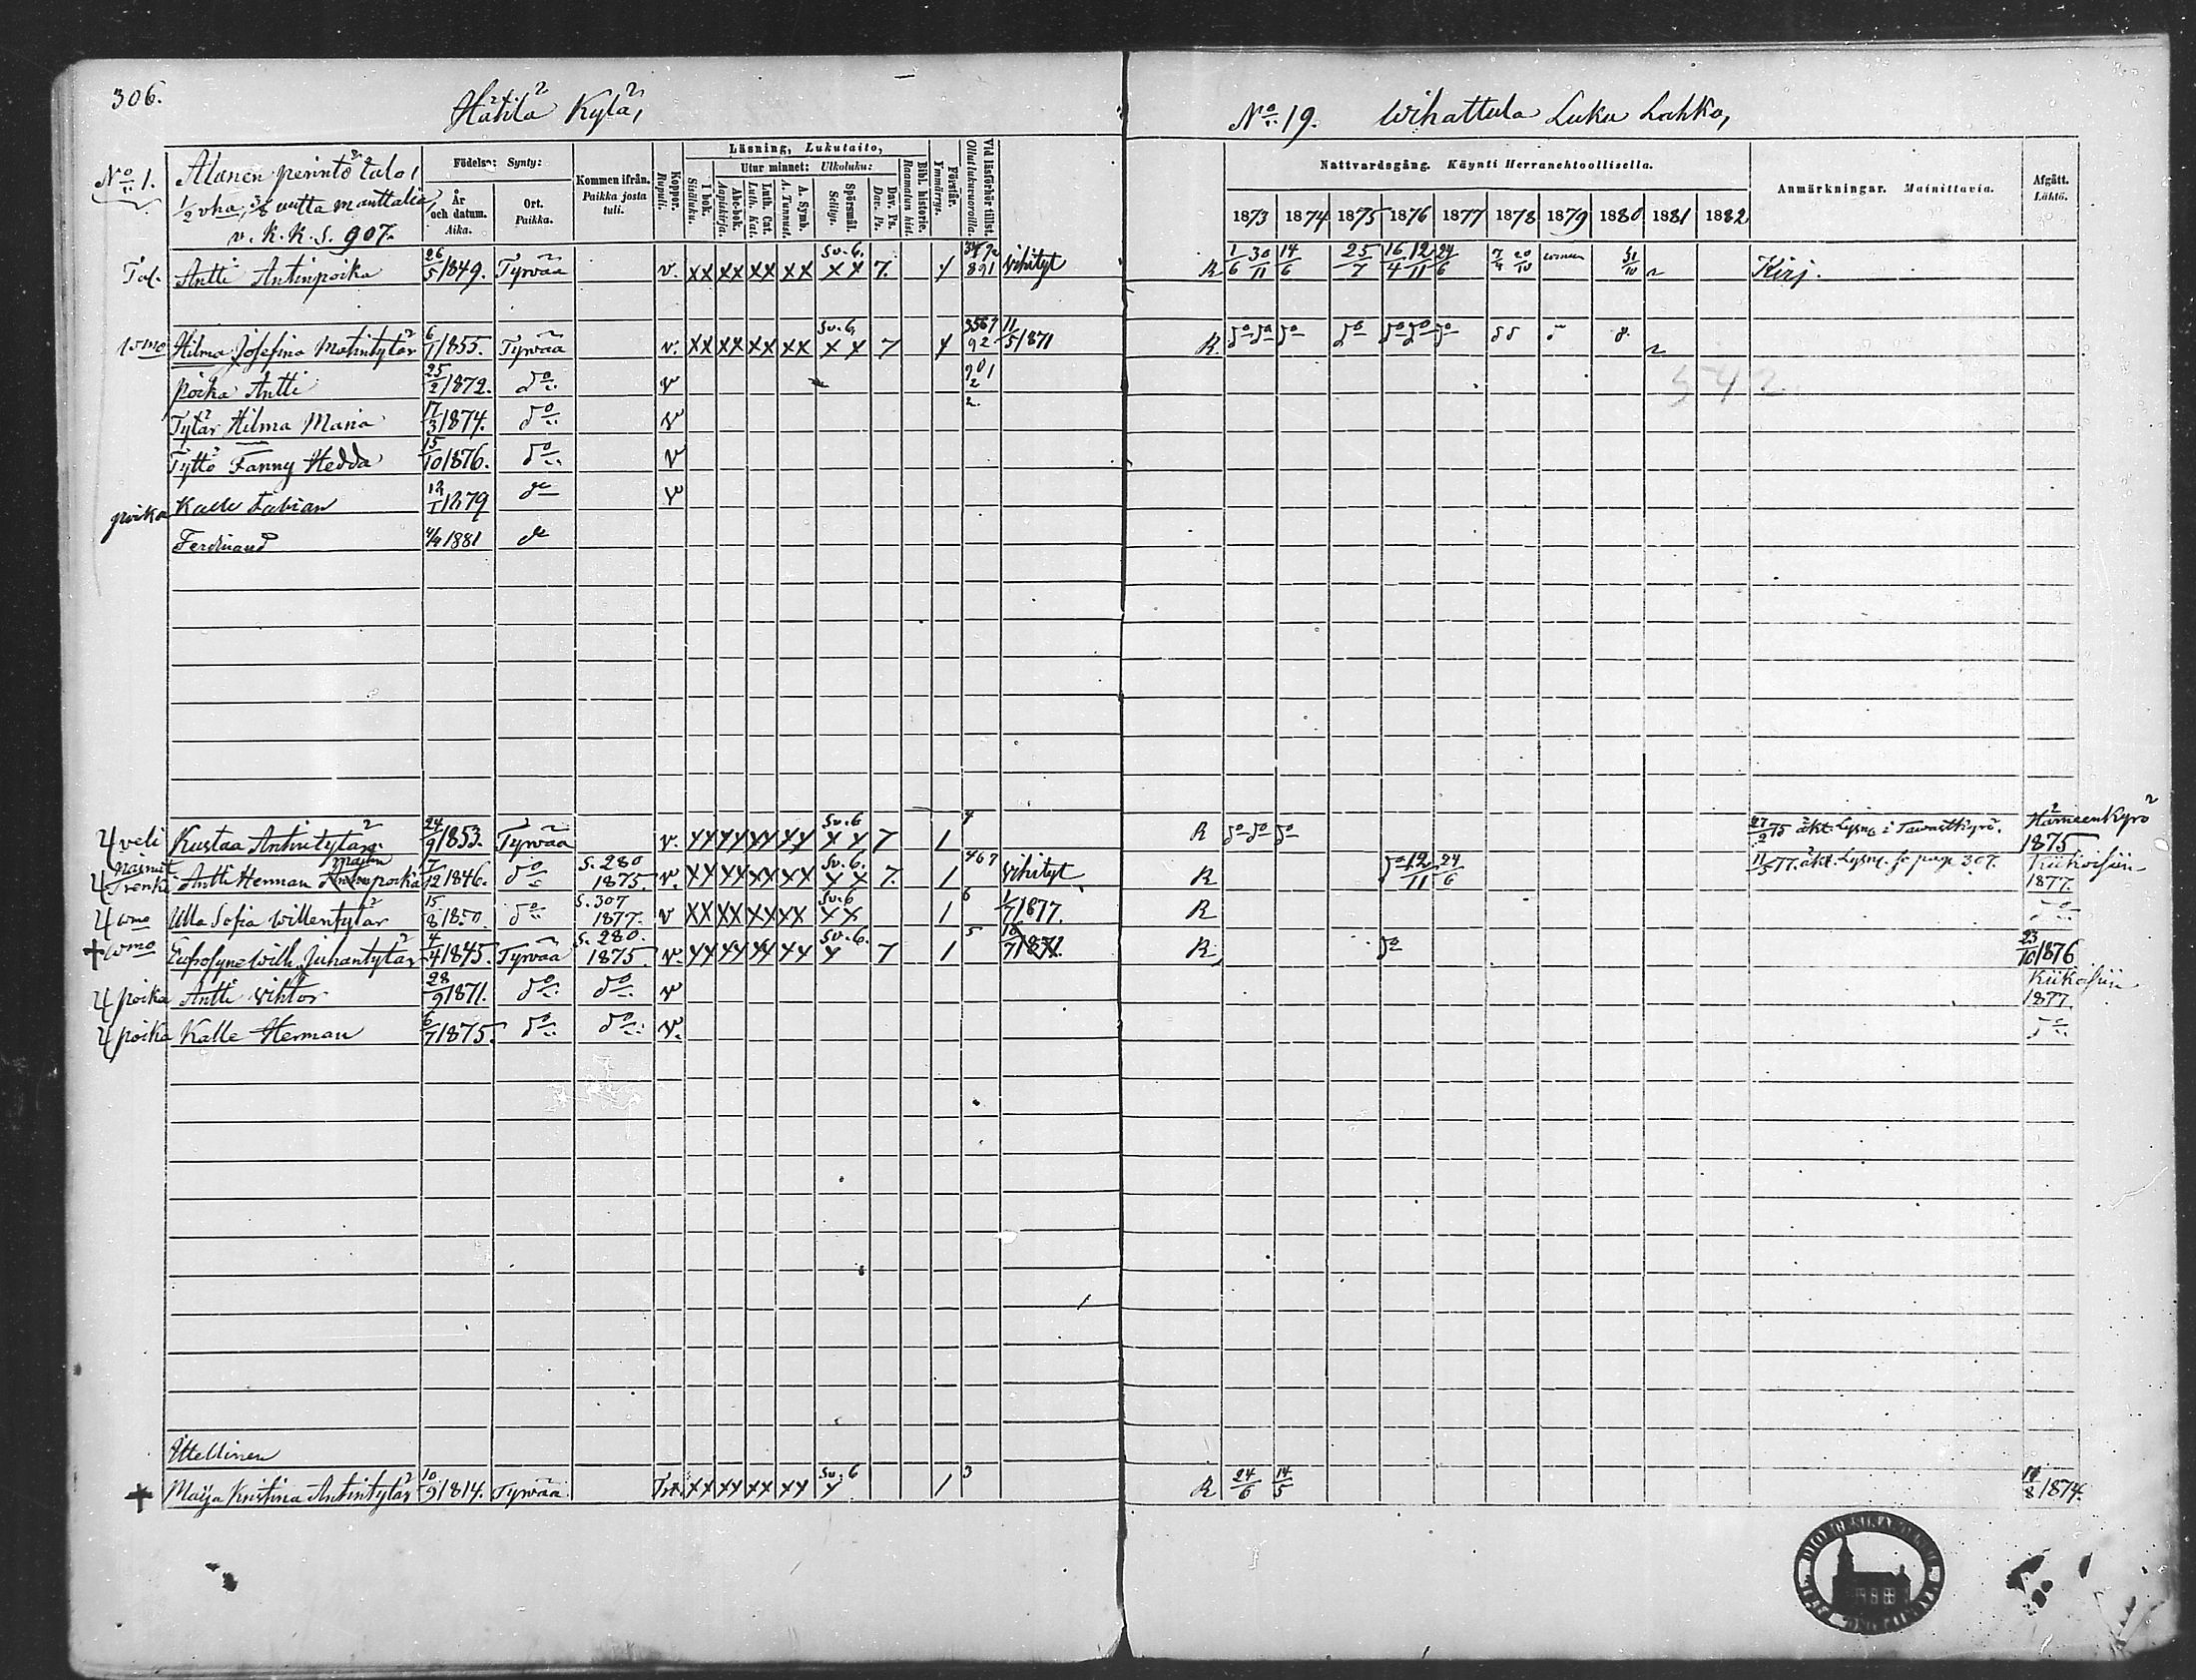 306.
Hätilä Kylä,
No 19. Wihattula Luku Lahko,
No 1. Alanen perintö talo,
1/2 vha, 3/8 uutta manttalia,
v. K. K. S. 907.
Födelse: Synty:
År och datum. Aika.
Ort. Paikka.
Kommen ifrån. Paikka josta tuli.
Koppor. Rupuli.
Läsning, Lukutaito,
I bok. Sisäluku.
Utur minnet: Ulkoluku:
Abc-bok. Aapiskirja.
Luth. Cat. Luth. Kat.
A. Symb. A. Tunnust.
Spörsmål. Selitys.
Dav. Ps. Dav. Ps.
Bibl. historie. Raamatun hist.
Förstår. Ymmärrys.
Vid läsförhör tillst. Ollut lukuvuorolla.
Nattvardsgång. Käynti Herranehtoollisella.
1873 1874 1875 1876 1877 1878 1879 1880 1881 1882
Anmärkningar. Mainittavia.
Afgått. Lähtö.
Tal. Antti Antinpoika 26/5 1849. Tyrvää v. xx xx xx xx Sv. 6. x x 7. 1 891 vihityt R 1/6 30/11 14/6 25/7 16/4 12/11 24/6 7/4 20/10 31/10 Kirj.
wmo Hilma Josefina Matintytär 6/1 1855. Tyrvää v. xx xx xx xx Sv. 6 x x 7 1 3567 92 11/5 1871 R do do do do do do do
poika Antti 25/2 1872. do v
542
Tytär Hilma Maria 17/3 1874. do v
Tyttö Fanny Hedda 15/10 1876. do v
poika Kalle Fabian 12/1 1879 do v
Ferdinand 4/4 1881 do
veli Kustaa Antintytär 24/9 1853. Tyrvää v. xx xx xx xx Sv. 6 x x 7 1 4 R do do do 27/2 75 äkt. Lysng i Tavastkyrö. Hämeenkyrö 1875
Trenki Antti Herman poika 7/12 1846. do S. 280 1875. v. xx xx xx xx Sv. 6. x x 7. 1 467 vihityt R do 12/11 24/6 11/5 77. äkt. Lysng. se page 307. Kiikoisiin 1877.
wmo Ulla Sofia Willentytär 15/8 1850. do S. 307 1877. v xx xx xx xx Sv. 6 x x 1 6 1/7 1877. R do
† wmo Eufrosyne Wilh. Juhantytär 4/4 1845. Tyrvää S. 280. 1875. v. xx xx xx xx Sv. 6. x 7 1 5 1871. R do 23/10 1876
poika Antti Wihtor 28/9 1871. do do v Kiikoisiin 1877
poika Kalle Herman 6/7 1875. do do v. do
Itellinen
† Maija Kristina Antintytär 10/9 1814. Tyrvää xx xx xx xx Sv. 6 x 1 3 R 24/6 14/5 1874.